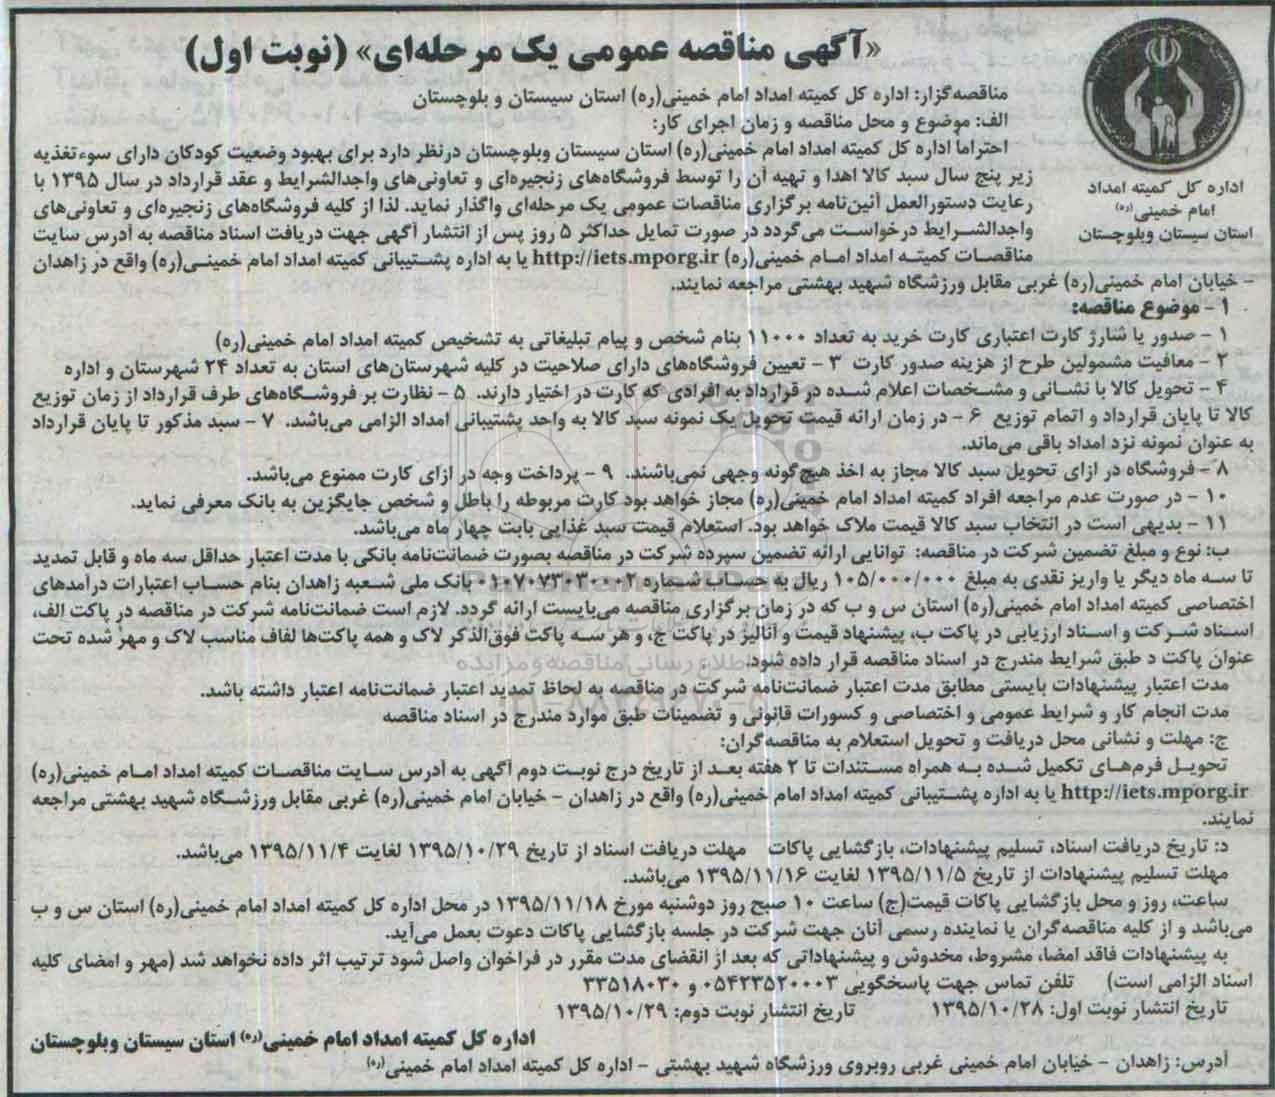 «آگهی مناقصه عمومی یک مرحله‌ای» (نوبت اول)
اداره کل کمیته امداد
امام خمینی(ره)
استان سیستان وبلوچستان
مناقصه‌گزار: اداره کل کمیته امداد امام خمینی(ره) استان سیستان و بلوچستان
الف: موضوع و محل مناقصه و زمان اجرای کار:
احتراماً اداره کل کمیته امداد امام خمینی(ره) استان سیستان وبلوچستان درنظر دارد برای بهبود وضعیت کودکان دارای سوءتغذیه
زیر پنج سال سبد کالا اهدا و تهیه آن را توسط فروشگاه‌های زنجیره‌ای و تعاونی‌های واجدالشرایط و عقد قرارداد در سال ۱۳۹۵ با
رعایت دستورالعمل آئین‌نامه برگزاری مناقصات عمومی یک مرحله‌ای واگذار نماید. لذا از کلیه فروشگاه‌های زنجیره‌ای و تعاونی‌های
واجدالشرایط درخواست می‌گردد در صورت تمایل حداکثر ۵ روز پس از انتشار آگهی جهت دریافت اسناد مناقصه به آدرس سایت
مناقصات کمیته امداد امام خمینی(ره) http://iets.mporg.ir یا به اداره پشتیبانی کمیته امداد امام خمینی(ره) واقع در زاهدان
– خیابان امام خمینی(ره) غربی مقابل ورزشگاه شهید بهشتی مراجعه نمایند.
۱ - موضوع مناقصه:
۱ - صدور یا شارژ کارت اعتباری کارت خرید به تعداد ۱۱۰۰۰ بنام شخص و پیام تبلیغاتی به تشخیص کمیته امداد امام خمینی(ره)
۲ - معافیت مشمولین طرح از هزینه صدور کارت ۳ - تعیین فروشگاه‌های دارای صلاحیت در کلیه شهرستان‌های استان به تعداد ۲۴ شهرستان و اداره
۴ - تحویل کالا با نشانی و مشخصات اعلام شده در قرارداد به افرادی که کارت در اختیار دارند. ۵ - نظارت بر فروشگاه‌های طرف قرارداد از زمان توزیع
کالا تا پایان قرارداد و اتمام توزیع ۶ - در زمان ارائه قیمت تحویل یک نمونه سبد کالا به واحد پشتیبانی امداد الزامی می‌باشد. ۷ - سبد مذکور تا پایان قرارداد
به عنوان نمونه نزد امداد باقی می‌ماند.
۸ - فروشگاه در ازای تحویل سبد کالا مجاز به اخذ هیچ‌گونه وجهی نمی‌باشند. ۹ - پرداخت وجه در ازای کارت ممنوع می‌باشد.
۱۰ - در صورت عدم مراجعه افراد کمیته امداد امام خمینی(ره) مجاز خواهد بود کارت مربوطه را باطل و شخص جایگزین به بانک معرفی نماید.
۱۱ - بدیهی است در انتخاب سبد کالا قیمت ملاک خواهد بود. استعلام قیمت سبد غذایی بابت چهار ماه می‌باشد.
ب: نوع و مبلغ تضمین شرکت در مناقصه: توانایی ارائه تضمین سپرده شرکت در مناقصه بصورت ضمانت‌نامه بانکی با مدت اعتبار حداقل سه ماه و قابل تمدید
تا سه ماه دیگر یا واریز نقدی به مبلغ ۱۰۵/۰۰۰/۰۰۰ ریال به حساب شماره ۰۱۰۷۰۷۳۰۳۰۰۰۲ بانک ملی شعبه زاهدان بنام حساب اعتبارات درآمدهای
اختصاصی کمیته امداد امام خمینی(ره) استان س و ب که در زمان برگزاری مناقصه می‌بایست ارائه گردد. لازم است ضمانت‌نامه شرکت در مناقصه در پاکت الف،
اسناد شرکت و اسناد ارزیابی در پاکت ب، پیشنهاد قیمت و آنالیز در پاکت ج، و هر سه پاکت فوق‌الذکر لاک و همه پاکت‌ها لفاف مناسب لاک و مهر شده تحت
عنوان پاکت د طبق شرایط مندرج در اسناد مناقصه قرار داده شود.
مدت اعتبار پیشنهادات بایستی مطابق مدت اعتبار ضمانت‌نامه شرکت در مناقصه به لحاظ تمدید اعتبار ضمانت‌نامه اعتبار داشته باشد.
مدت انجام کار و شرایط عمومی و اختصاصی و کسورات قانونی و تضمینات طبق موارد مندرج در اسناد مناقصه
ج: مهلت و نشانی محل دریافت و تحویل استعلام به مناقصه‌گران:
تحویل فرم‌های تکمیل شده به همراه مستندات تا ۲ هفته بعد از تاریخ درج نوبت دوم آگهی به آدرس سایت مناقصات کمیته امداد امام خمینی(ره)
http://iets.mporg.ir یا به اداره پشتیبانی کمیته امداد امام خمینی(ره) واقع در زاهدان – خیابان امام خمینی(ره) غربی مقابل ورزشگاه شهید بهشتی مراجعه
نمایند.
د: تاریخ دریافت اسناد، تسلیم پیشنهادات، بازگشایی پاکات مهلت دریافت اسناد از تاریخ ۱۳۹۵/۱۰/۲۹ لغایت ۱۳۹۵/۱۱/۴ می‌باشد.
مهلت تسلیم پیشنهادات از تاریخ ۱۳۹۵/۱۱/۵ لغایت ۱۳۹۵/۱۱/۱۶ می‌باشد.
ساعت، روز و محل بازگشایی پاکات قیمت(ج) ساعت ۱۰ صبح روز دوشنبه مورخ ۱۳۹۵/۱۱/۱۸ در محل اداره کل کمیته امداد امام خمینی(ره) استان س و ب
می‌باشد و از کلیه مناقصه‌گران یا نماینده رسمی آنان جهت شرکت در جلسه بازگشایی پاکات دعوت بعمل می‌آید.
به پیشنهادات فاقد امضا، مشروط، مخدوش و پیشنهاداتی که بعد از انقضای مدت مقرر در فراخوان واصل شود ترتیب اثر داده نخواهد شد (مهر و امضای کلیه
اسناد الزامی است) تلفن تماس جهت پاسخگویی ۰۵۴۲۳۵۲۰۰۰۳ و ۳۳۵۱۸۰۳۰
تاریخ انتشار نوبت اول: ۱۳۹۵/۱۰/۲۸ تاریخ انتشار نوبت دوم: ۱۳۹۵/۱۰/۲۹
اداره کل کمیته امداد امام خمینی(ره) استان سیستان وبلوچستان
آدرس: زاهدان – خیابان امام خمینی غربی روبروی ورزشگاه شهید بهشتی – اداره کل کمیته امداد امام خمینی(ره)